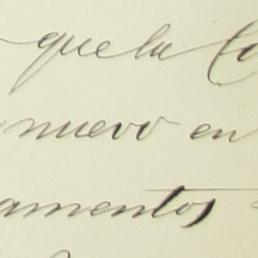 que la Co
nuevo en
amentos